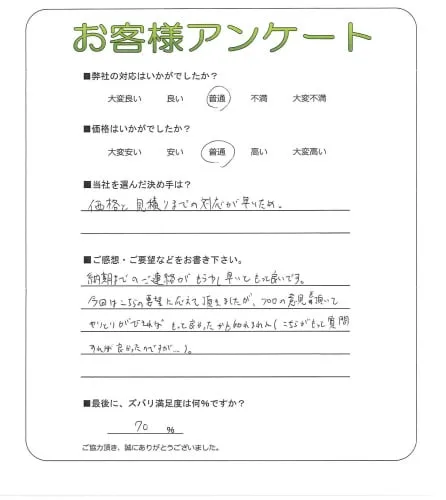 お客様アンケート
■弊社の対応はいかがでしたか？
大変良い 良い 普通 不満 大変不満
■価格はいかがでしたか？
大変安い 安い 普通 高い 大変高い
■当社を選んだ決め手は？
価格と見積りまでの対応が早いため。
■ご感想・ご要望などをお書き下さい。
納期までのご連絡がもう少し早いともって良いです。
今回はこちらの要望に応えて頂きましたが、プロの意見を頂いて
やりとりができれば もっと良かったかも知れません(こちらがもって質問
すれば良かったのですが…)。
■最後に、ズバリ満足度は何%ですか？
70 %
ご協力頂き、誠にありがとうございました。